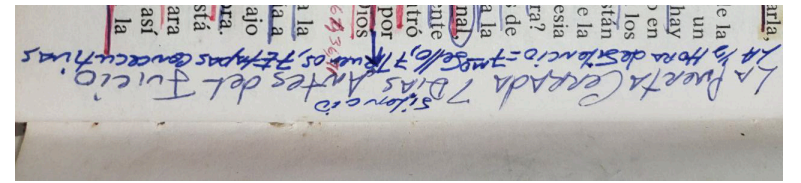 arla,
e la
un
hay
o en
los
están
e la
esia
ra?
s de
a la
ente
nal
tró
por
Dios
a la
na a
ajo
ra.
stá
ara
así
la
silencio
LA PUERTA CERRADA 7 DIAS ANTES DEL JUICIO
LA 1/2 HORA de Silencio = 7mo Sello, 7 TRuenos, 7 ETApas Concecutivas